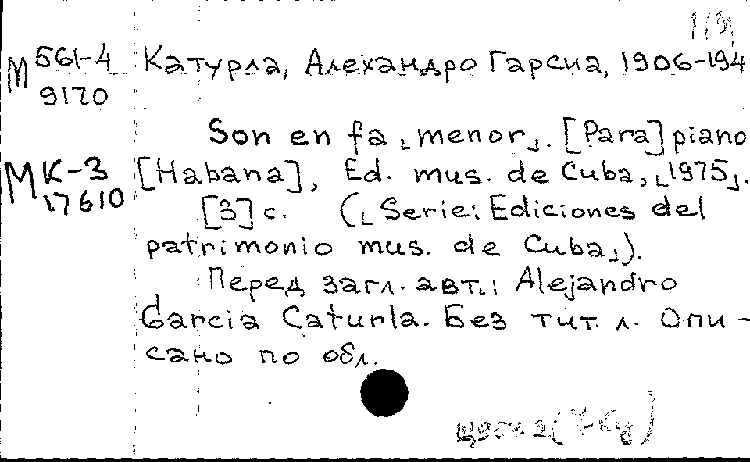 М 561-4
9120
Катурла, Алехандро Гарсиа, 1906-194
Son en fa ⌞menor⌟. [Para] piano
МК-3
17610
[Habana], Ed. mus. de Cuba, ⌞1975⌟.
[3] с. (⌞Serie: Ediciones del
patrimonio mus. de Cuba⌟).
Перед загл. авт.: Alejandro
Garcia Caturla. Без тит. л. Опи-
сано по обл.